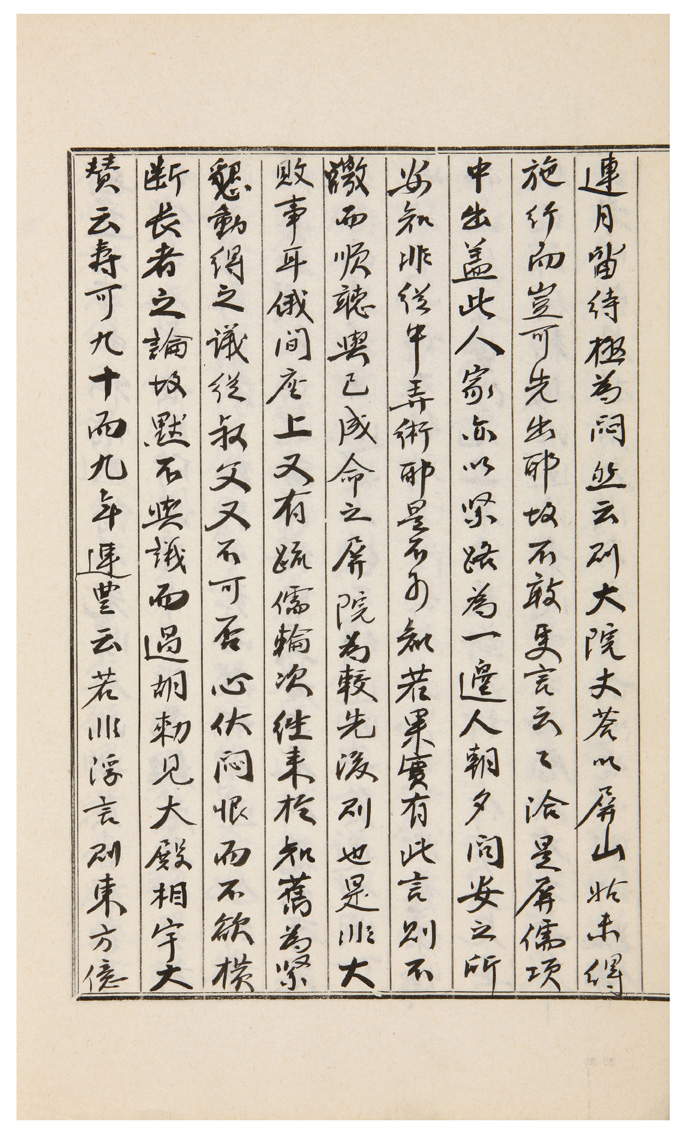 連月留待極為悶然云則大院丈答以屏山姑未得
施行而豈可先出耶故不敢更言云〻洽是屏儒項
中出盖此人家亦以緊路為一邊人朝夕問安之所
安知非從中弄術耶是不可知若果實有此言則不
徼而順聽與已成命之屏院為較先後則也是非大
敗事耳俄間座上又有疏儒輪次繼来於知舊為緊
懇動得之議從叔父又不可否心伏悶恨而不欲横
断長者之論故默不與議而過胡勅見大殿相字大
賛云壽可九十而九年連豐云若非浮言則東方億